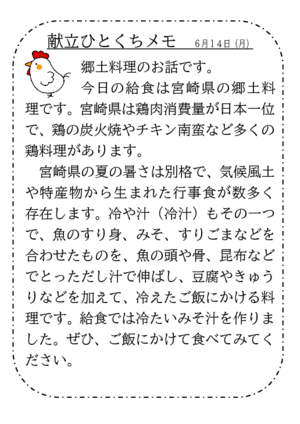 献立ひとくちメモ　6月14日(月)
郷土料理のお話です。
今日の給食は宮崎県の郷土料
理です。宮崎県は鶏肉消費量が日本一位
で、鶏の炭火焼やチキン南蛮など多くの
鶏料理があります。
宮崎県の夏の暑さは別格で、気候風土
や特産物から生まれた行事食が数多く
存在します。冷や汁（冷汁）もその一つ
で、魚のすり身、みそ、すりごまなどを
合わせたものを、魚の頭や骨、昆布など
でとっただし汁で伸ばし、豆腐やきゅう
りなどを加えて、冷えたご飯にかける料
理です。給食では冷たいみそ汁を作りま
した。ぜひ、ご飯にかけて食べてみてく
ださい。